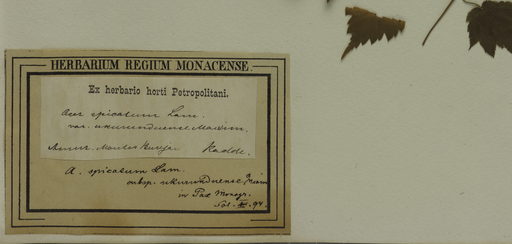 HERBARIUM REGIUM MONACENSE.
Ex herbario horti Petropolitani.
Acer spicatum Lam.
var. ukurunduense Maxim.
Amur. Montes Bureja Radde.
A. spicatum Lam.
subsp. ukurunduense Maxim
in Pax Monogr.
94.